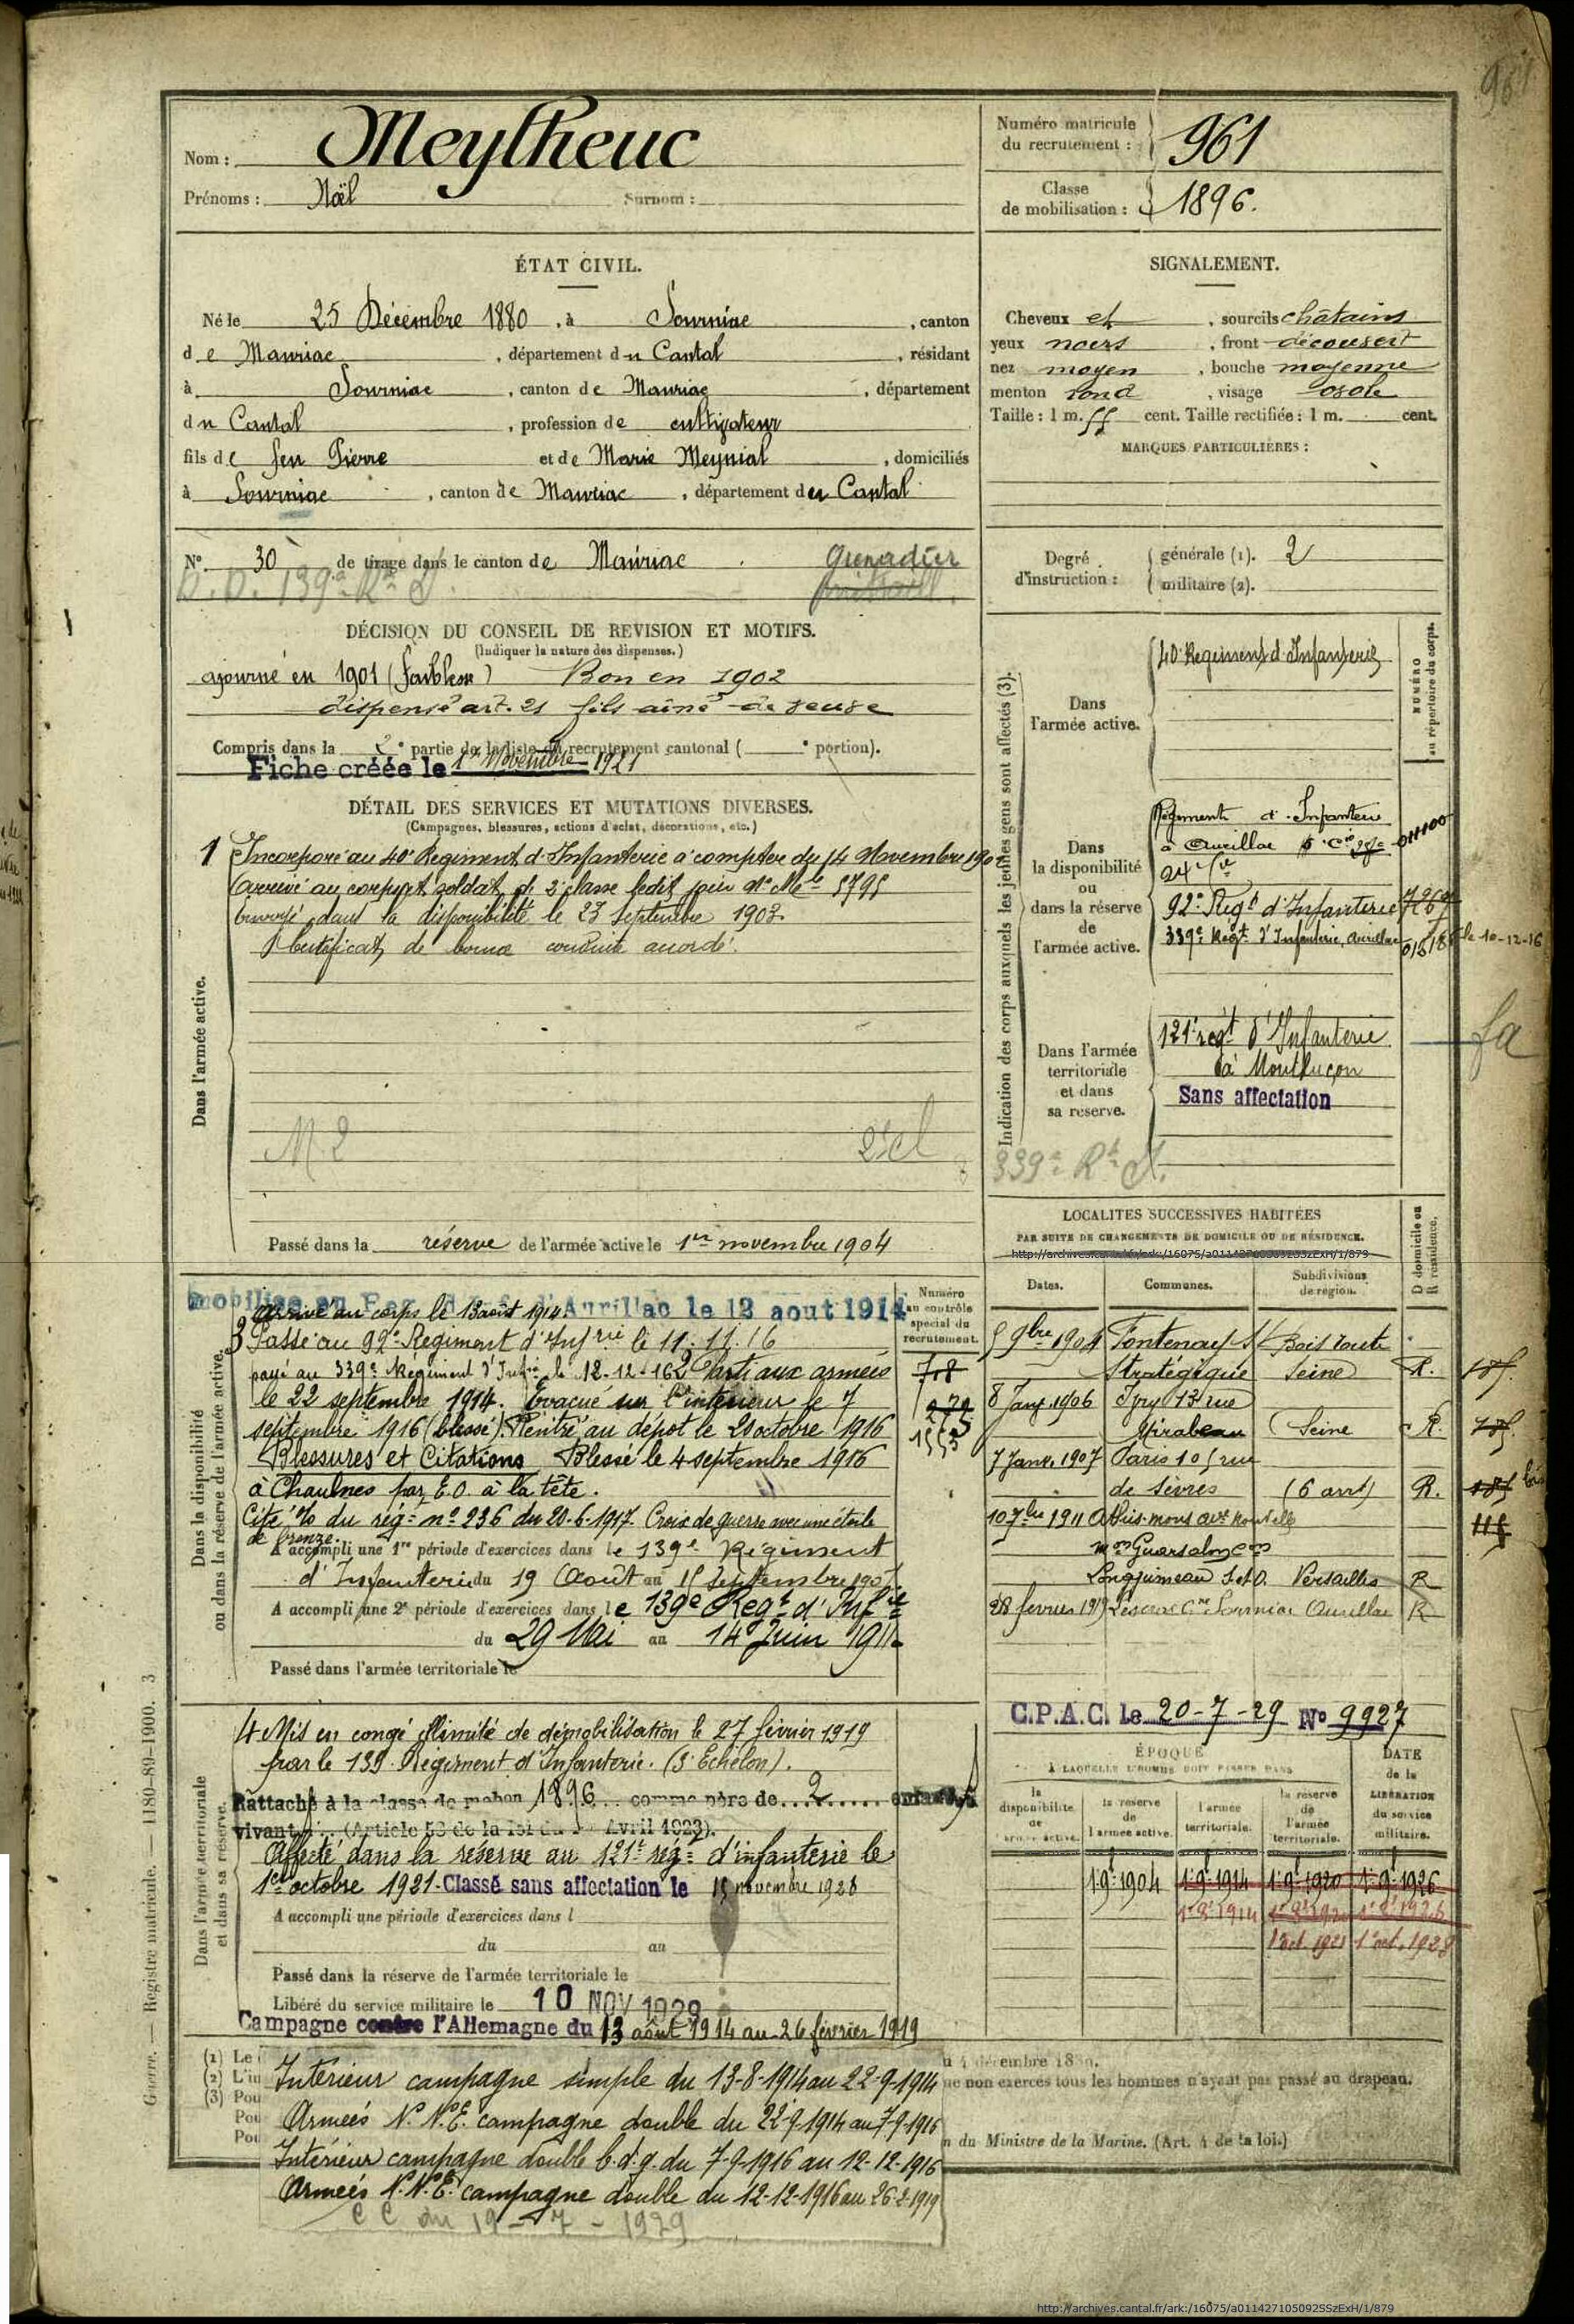 961
Nom : Meytheuc
Prénoms : Noël Surnom :
Numéro matricule du recrutement : 961
Classe de mobilisation : 1896.
ÉTAT CIVIL.
Né le 25 Décembre 1880, à Sourniac, canton
de Mauriac, département du Cantal, résidant
à Sourniac, canton de Mauriac, département
du Cantal, profession de cultivateur
fils de feu Pierre et de Marie Meynial, domiciliés
à Sourniac, canton de Mauriac, département du Cantal
SIGNALEMENT.
Cheveux et, sourcils châtains
yeux noirs, front découvert
nez moyen, bouche moyenne
menton rond, visage ovale
Taille : 1 m. 55 cent. Taille rectifiée : 1 m. cent.
MARQUES PARTICULIÈRES :
N° 30 de tirage dans le canton de Mauriac. Grenadier
D.D. 139e Rt I.
Degré d'instruction : générale (1). 2
militaire (2).
DÉCISION DU CONSEIL DE REVISION ET MOTIFS.
(Indiquer la nature des dispenses.)
ajourné en 1901 (faiblesse) Bon en 1902
dispensé art. 21 fils aîné de veuve
Compris dans la 2e partie de la liste du recrutement cantonal ( e portion).
Fiche créée le 1er Novembre 1921
DÉTAIL DES SERVICES ET MUTATIONS DIVERSES.
(Campagnes, blessures, actions d'éclat, décorations, etc.)
Dans l'armée active.
1 Incorporé au 40e Régiment d'Infanterie à compter du 14 Novembre 1902
Arrivé au corps et soldat de 2e classe ledit jour No Mle 5795
Envoyé dans la disponibilité le 23 Septembre 1903.
Certificat de bonne conduite accordé.
M. 2 2e cl
Passé dans la réserve de l'armée active le 1er novembre 1904
Indication des corps auxquels les jeunes gens sont affectés (3).
NUMÉRO au répertoire du corps.
Dans l'armée active.
40e Régiment d'Infanterie
Dans la disponibilité ou dans la réserve de l'armée active.
Régiment d'Infanterie
à Aurillac
92e Régt d'Infanterie
339e Régt d'Infanterie, Aurillac le 10-12-16
Dans l'armée territoriale et dans sa reserve.
121e régt d'Infanterie
à Montluçon
Sans affectation
fa
339e Rt I.
LOCALITES SUCCESSIVES HABITÉES
PAR SUITE DE CHANGEMENTS DE DOMICILE OU DE RÉSIDENCE.
D domicile ou R résidence.
Dates. Communes. Subdivisions de région.
5 9bre 1904 Fontenay s/ Bois route
Stratégique Seine R.
8 Janv. 1906 Ivry 13 rue
Mirabeau Seine R.
7 Janv. 1907 Paris 105 rue
de Sèvres (6 arrt) R.
10 7bre 1911 Athis-mons
Longjumeau S.et O. Versailles R
28 fevrier 1919 Sourniac Aurillac R
Dans la disponibilité ou dans la réserve de l'armée active.
Numéro au contrôle spécial du recrutement.
708
1553
mobilisé au Reg. d'Inf. d'Aurillac le 12 aout 1914
arrivé au corps le 13 août 1914.
3 Passé au 92e Régiment d'Infrie le 11.11.16
passé au 339e Régiment d'Infie le 12-12-16 2 Parti aux armées
le 22 septembre 1914. Évacué sur l'intérieur le 7
septembre 1916 (blessé). Rentré au dépot le 21 octobre 1916
Blessures et Citations Blessé le 4 septembre 1916
à Chaulnes par E.O. à la tête.
Cité à l'o/ du rég= n° 236 du 20-6-1917. Croix de guerre avec une étoile
de bronze.
A accompli une 1re période d'exercices dans le 139e Régiment
d'Infanterie du 19 Août au 15 Septembre 1907
A accompli une 2e période d'exercices dans le 139e Régt d'Infie
du 29 Mai au 14 Juin 1911
Passé dans l'armée territoriale le
Dans l'armée territoriale et dans sa réserve.
4 Mis en congé illimité de démobilisation le 27 février 1919
par le 139e Régiment d'Infanterie. (3e Echelon).
Rattaché à la classe de mobon 1896 comme père de 2 enfants
vivants (Article 58 de la loi du 1er Avril 1923).
Affecté dans la réserve au 121e rég= d'infanterie le
1er octobre 1921. Classé sans affectation le 15 novembre 1928
A accompli une période d'exercices dans l
du au
Passé dans la réserve de l'armée territoriale le
Libéré du service militaire le 10 NOV 1929
Campagne contre l'Allemagne du 13 août 1914 au 26 février 1919
C.P.A.C. Le 20-7-29 No 9927
ÉPOQUE À LAQUELLE L'HOMME DOIT PASSER DANS
DATE de la LIBÉRATION du service militaire.
la disponibilité de l'armée active.
la reserve de l'armée active.
l'armée territoriale.
la réserve de l'armée territoriale.
1 9e 1904 1 9e 1914 1 9e 1920 1 9e 1926
1er 8e 1914 1er 8e 1920 1er 8e 1926
1er oct. 1921 1er oct. 1928
Intérieur campagne simple du 13-8-1914 au 22-9-1914
Armées N.N.E. campagne double du 22-9-1914 au 7-9-1916
Intérieur campagne double b.d.g. du 7-9-1916 au 12-12-1916
Armées N.N.E. campagne double du 12-12-1916 au 26-2-1919
C C du 19-7-1929
ne non exercés tous les hommes n'ayant pas passé au drapeau.
n du Ministre de la Marine. (Art. 4 de la loi.)
Guerre. — Registre matricule. — 1180-89-1900. 3
http://archives.cantal.fr/ark:/16075/a011427105092SSzExH/1/879